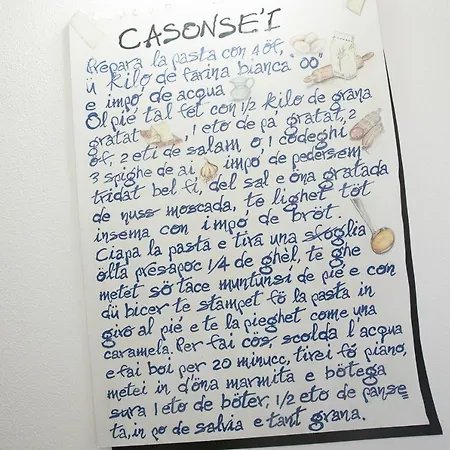 CASONSE'I
Prepara la pasta con 4 öf,
ü kilo de farina bianca "00"
e impó de acqua
Ol pié tal fét con 1/2 kilo de grana
gratat, 1 eto de pà gratat, 2
öf, 2 eti de salam o 1 codeghì
3 spighe de ai, impó de pedersem
tridat bel fì, del sal e öna gratada
de nuss moscada, te lighet töt
insema con impó de bröt.
Ciapa la pasta e tira una sfoglia
ölta presapoc 1/4 de ghèl, te ghe
metet sö tace muntunsì de pié e con
dü bicer te stampet fö la pasta in
giro al pié e te la pieghet come una
caramela. Per fai cös scolda l'acqua
e fai boi per 20 minucc, tirei fö piano,
metei in d'öna marmita e bötega
sura 1 eto de böter, 1/2 eto de panse
ta, in po de salvia e tant grana.